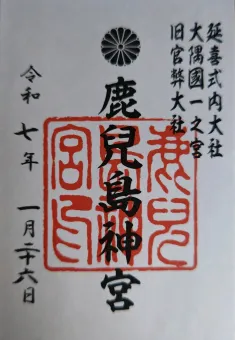 延喜式内大社
大隅國一之宮
旧官幣大社
鹿兒島神宮
令和七年 一月二十六日
鹿兒
島神
宮印